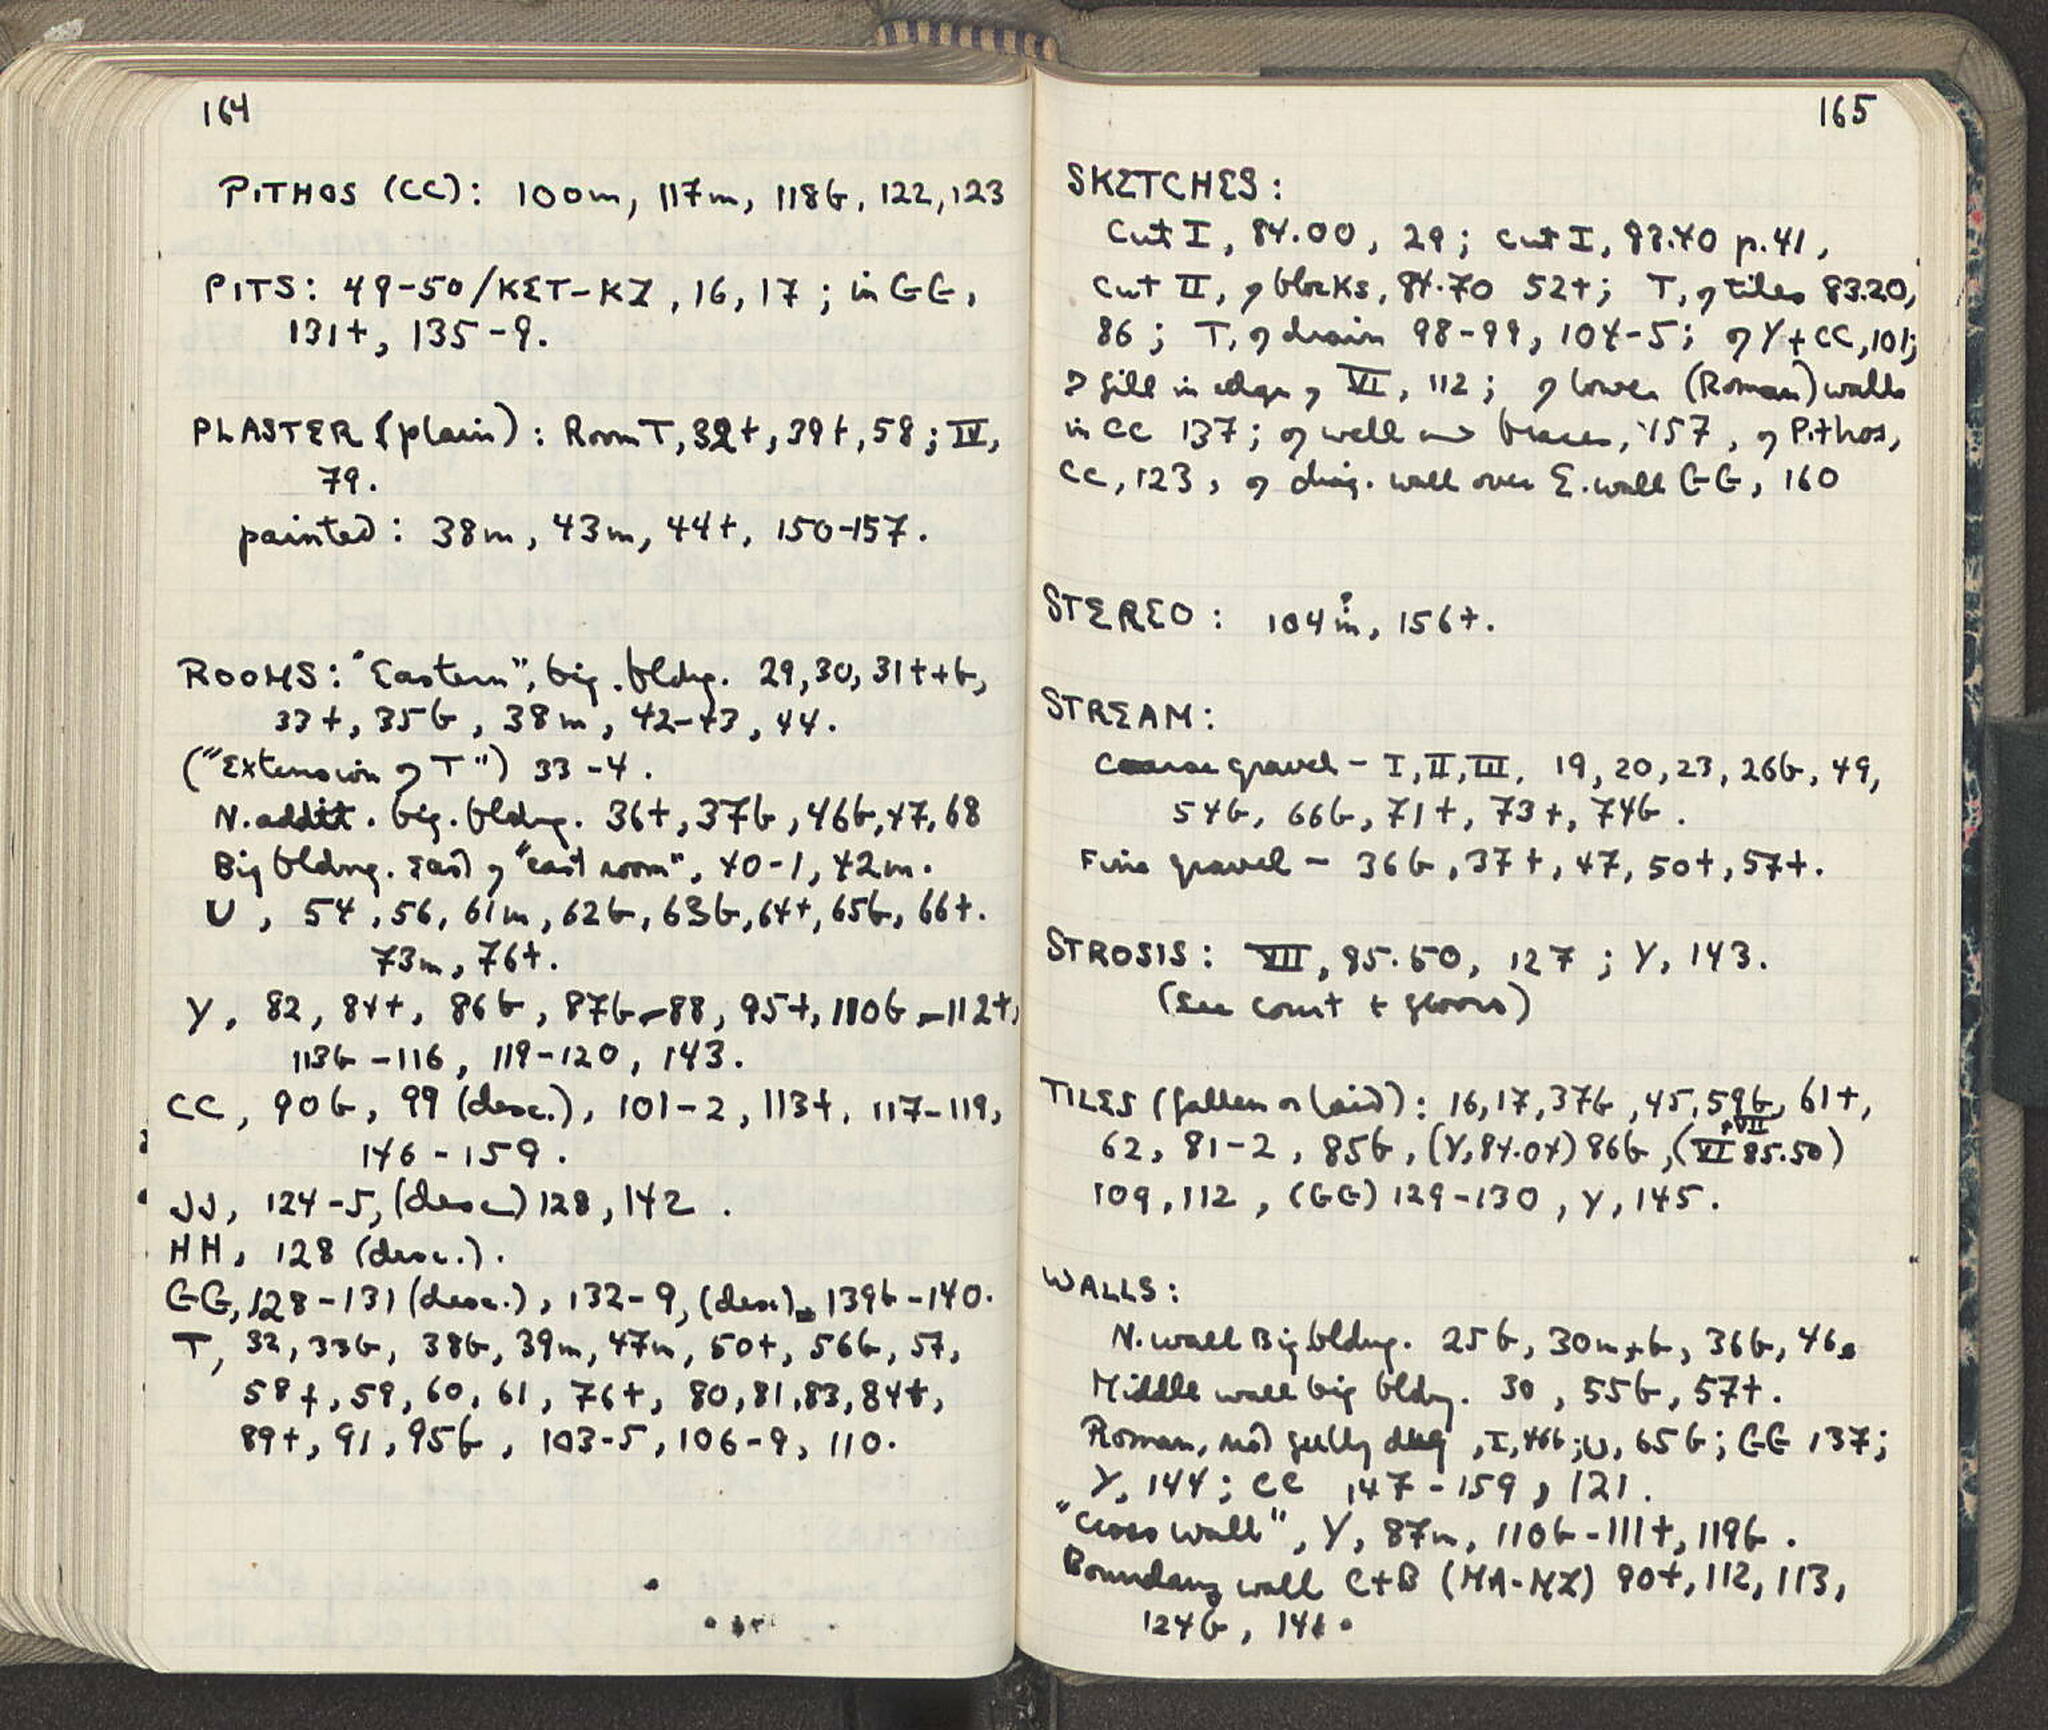 164
PITHOS (CC): 100m, 117m, 118b, 122, 123
PITS: 49-50/KET-KZ, 16, 17; in GG,
131t, 135-9.
PLASTER (plain): Room T, 32t, 39t, 58; IV,
79.
painted: 38m, 43m, 44t, 150-157.
ROOMS: "Eastern", big. bldng. 29, 30, 31t+b,
33t, 35b, 38m, 42-43, 44.
("Extension of T") 33-4.
N. addit. big. bldng. 36t, 37b, 46b, 47, 68
Big bldng. East of "east room", 40-1, 42m.
U, 54, 56, 61m, 62b, 63b, 64t, 65b, 66t.
73m, 76t.
Y, 82, 84t, 86b, 87b-88, 95t, 110b-112t,
113b-116, 119-120, 143.
CC, 90b, 99 (desc.), 101-2, 113t, 117-119,
146-159.
JJ, 124-5, (desc) 128, 142.
HH, 128 (desc.).
GG, 128-131 (desc.), 132-9, (desc) 139b-140.
T, 32, 33b, 38b, 39m, 47m, 50t, 56b, 57,
58t, 59, 60, 61, 76t, 80, 81, 83, 84t,
89t, 91, 95b, 103-5, 106-9, 110.
165
SKETCHES:
Cut I, 84.00, 29; cut I, 83.40 p. 41,
Cut II, of blocks, 84.70 52t; T, of tiles 83.20,
86; T, of drain 98-99, 104-5; of Y+CC, 101;
of fill in edge of VI, 112; of lower (Roman) walls
in CC 137; of well and braces, 157, of Pithos,
CC, 123, of diag. wall over E. wall GG, 160
STEREO: 104m?, 156t.
STREAM:
Coarse gravel - I, II, III, 19, 20, 23, 26b, 49,
54b, 66b, 71t, 73t, 74b.
Fine gravel - 36b, 37t, 47, 50t, 57t.
STROSIS: VII, 85.50, 127; Y, 143.
(See court + floors)
TILES (fallen or laid): 16, 17, 37b, 45, 59b, 61t,
62, 81-2, 85b, (Y, 84.04) 86b, (VI +VII 85.50)
109, 112, (GG) 129-130, Y, 145.
WALLS:
N. wall Big bldng. 25b, 30m+b, 36b, 46
Middle wall big bldng. 30, 55b, 57t.
Roman, not fully dug, I, 46b; U, 65b; GG 137;
Y, 144; CC 147-159, 121.
"Cross wall", Y, 87m, 110b-111t, 119b.
Boundary wall C+B (MA-MZ) 90t, 112, 113,
124b,